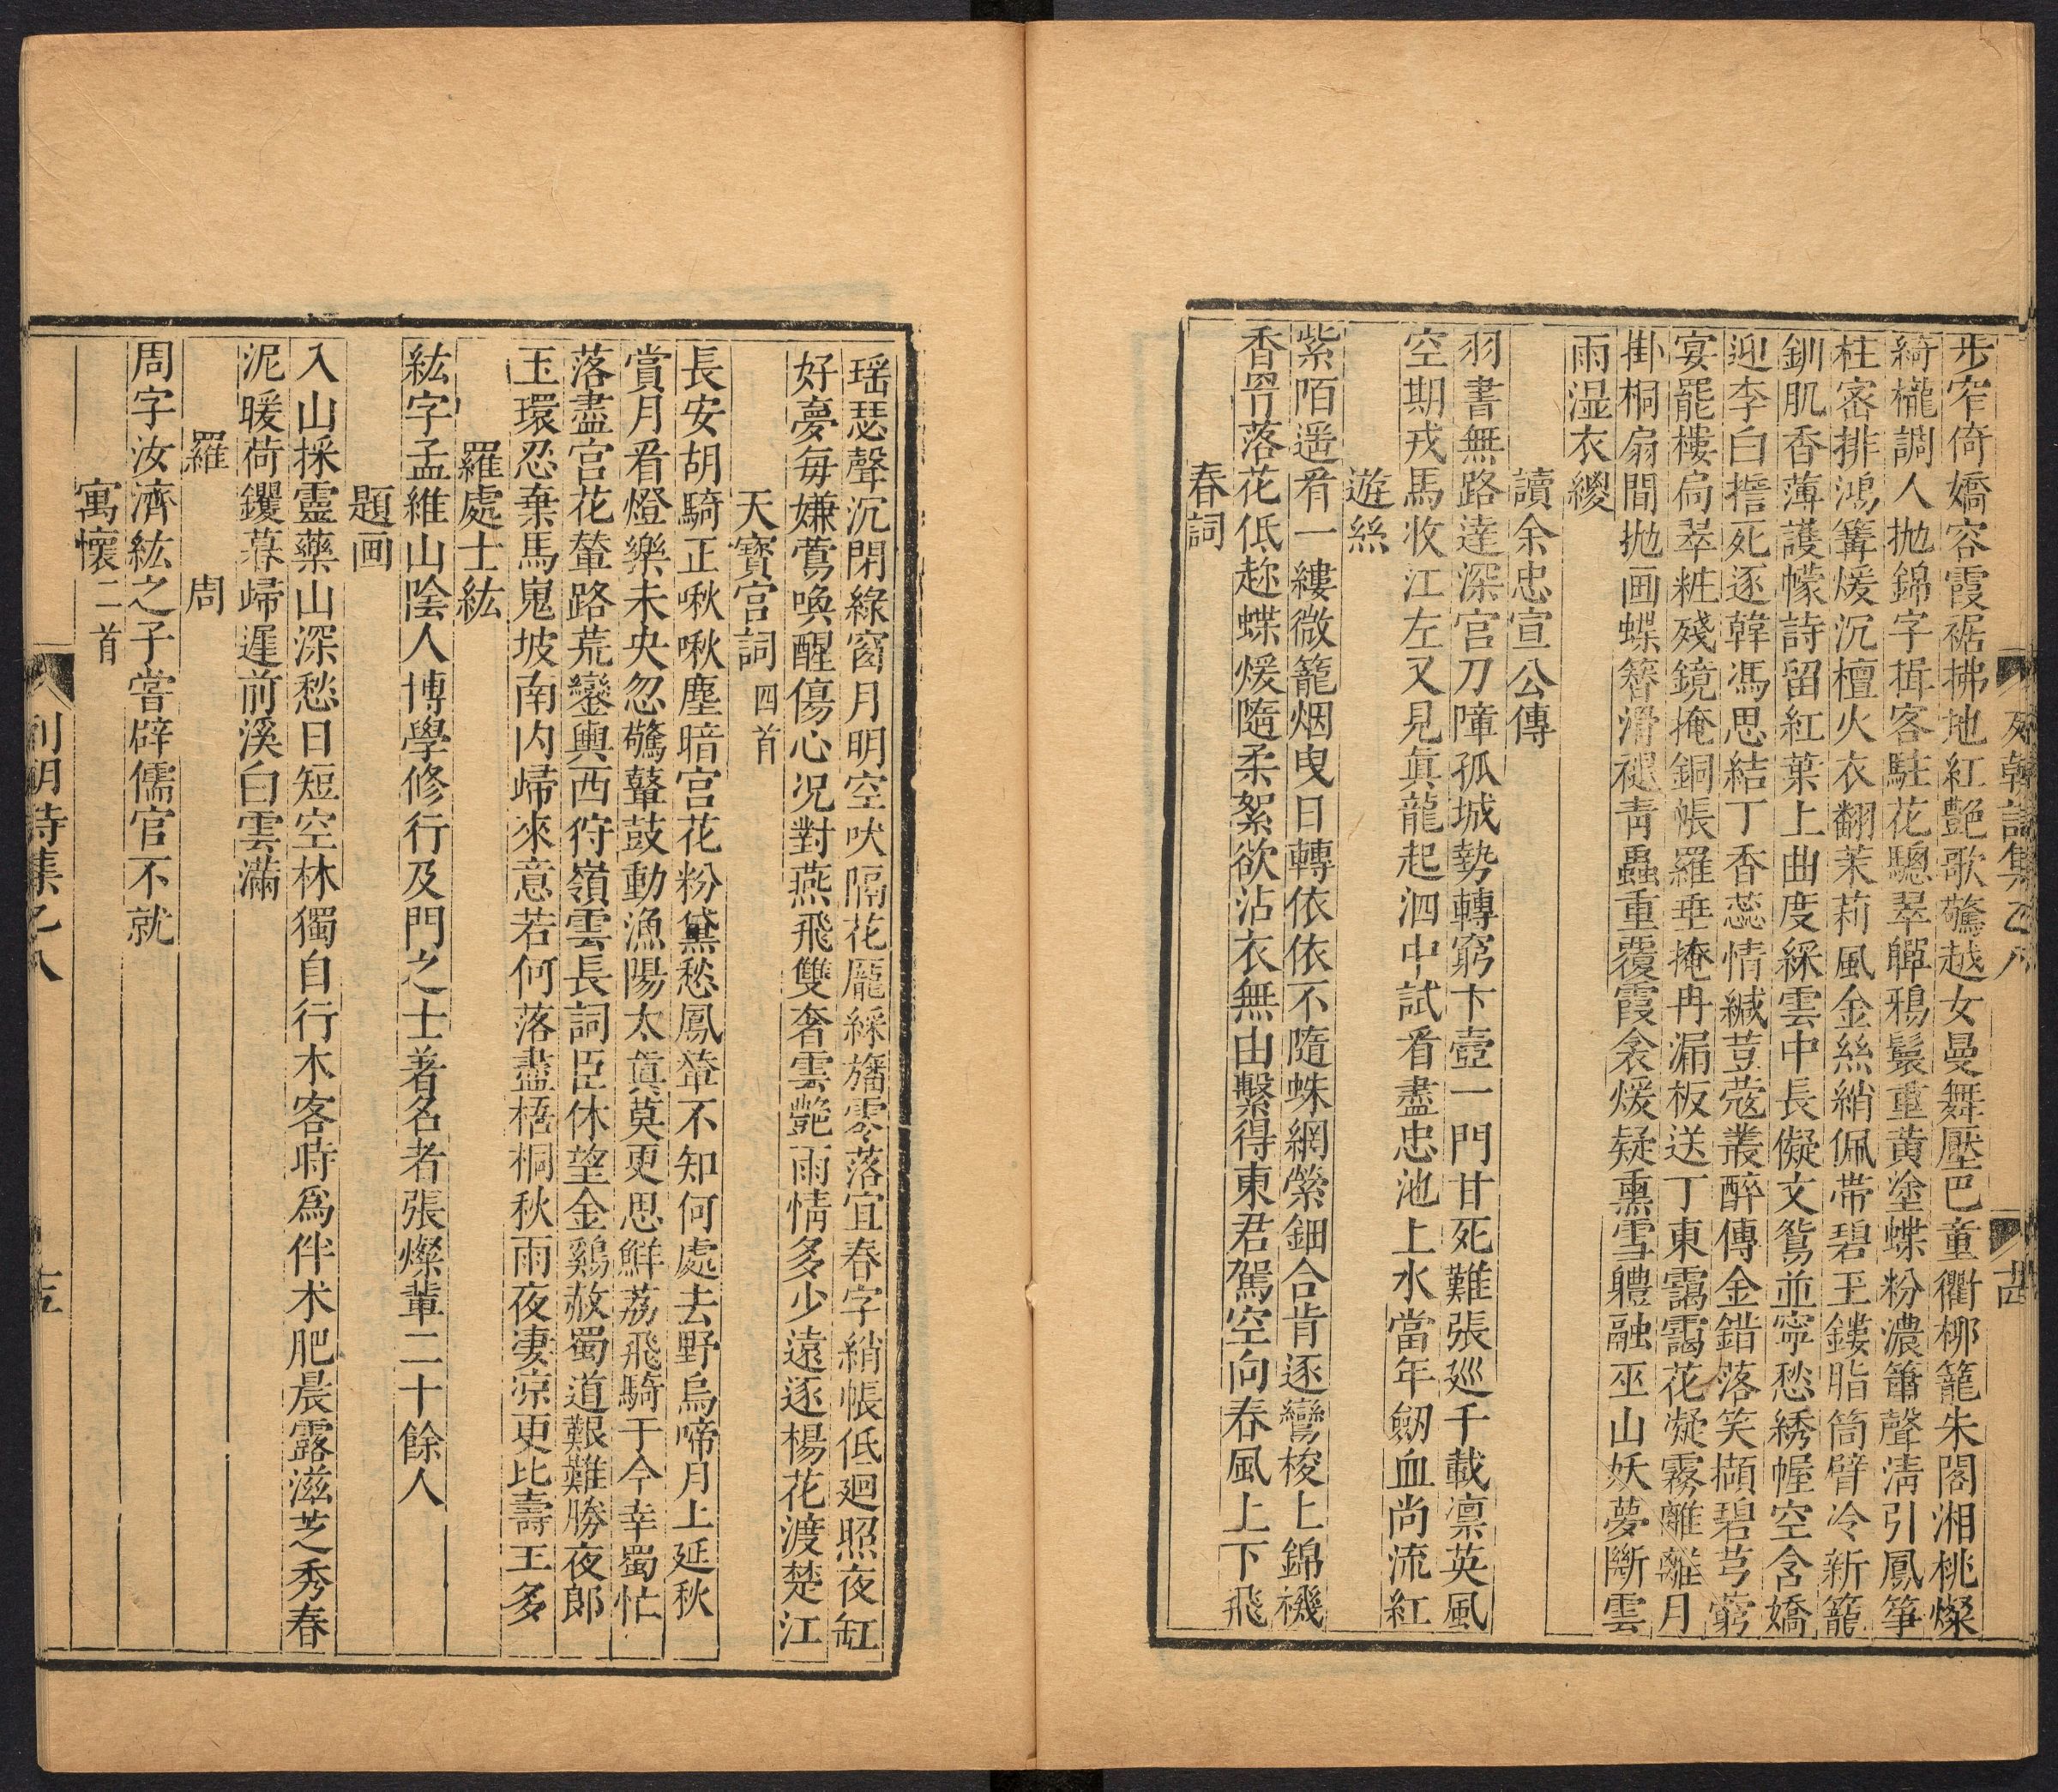 步窄倚嬌容霞裾拂地紅艶歌驚越女曼舞壓巴童衢柳籠朱閣湘桃燦
綺櫳調人拋錦字揖客駐花驄翠軃鴉鬟重黄塗蝶粉濃簫聲清引鳳筝
柱密排鴻篝煖沉檀火衣翻茉莉風金絲綃佩帶碧玉鏤脂筒臂冷新籠
釧肌香薄護幪詩留紅葉上曲度綵雲中長儗文鴛並寧愁綉幄空含嬌
迎李白擔死逐韓馮思結丁香蕊情緘荳蔻叢醉傳金錯落笑擷碧芎藭
宴罷樓扃翠粧殘鏡掩銅帳羅垂掩冉漏板送丁東靄靄花凝霧離離月
掛桐扇間拋画蝶簪滑褪靑蟲重覆霞衾煖疑熏雪軆融巫山妖夢斷雲
雨湿衣緵
讀余忠宣公傳
羽書無路達深宫刀障孤城勢轉窮卞壺一門甘死難張廵千載凛英風
空期戎馬收江左又見眞龍起泗中試看盡忠池上水當年劒血尚流紅
遊絲
紫陌遥看一縷微籠烟曳日轉依依不隨蛛網縈鈿合肯逐鸞梭上錦機
香罥落花低趂蝶煖隨柔絮欲沾衣無由繫得東君駕空向春風上下飛
春詞
瑶瑟聲沉閉綠窗月明空吠隔花厖綵旛零落宜春字綃帳低迴照夜缸
好夢每嫌鶯喚醒傷心况對燕飛雙奢雲艷雨情多少遠逐楊花渡楚江
天寳宫詞四首
長安胡騎正啾啾塵暗宫花粉黛愁鳳輦不知何處去野烏啼月上延秋
賞月看燈樂未央忽驚鼙鼓動漁陽太眞莫更思鮮荔飛騎于今幸蜀忙
落盡宫花輦路荒鑾輿西狩嶺雲長詞臣休望金鷄赦蜀道艱難勝夜郎
玉環忍棄馬嵬坡南内歸來意若何落盡梧桐秋雨夜凄凉更比壽王多
羅處士紘
紘字孟維山隂人博學修行及門之士著名者張燦輩二十餘人
題画
入山採靈藥山深愁日短空林獨自行木客時爲伴术肥晨露滋芝秀春
泥暖荷钁暮歸遲前溪白雲滿
羅　周
周字汝濟紘之子嘗辟儒官不就
寓懷二首
列朝詩集乙八